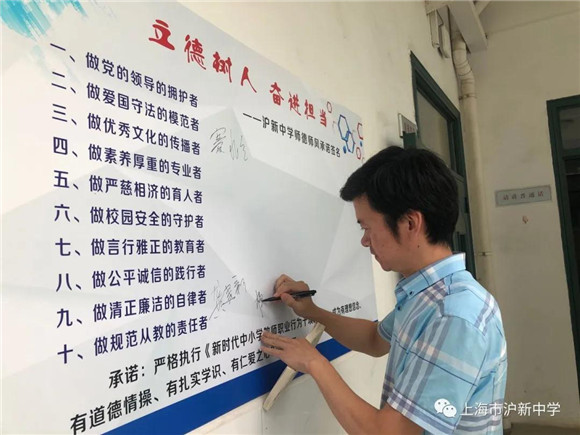 立德树人 奋进担当
——沪新中学师德师风承诺签名
一、做党的领导的拥护者
二、做爱国守法的模范者
三、做优秀文化的传播者
四、做素养厚重的专业者
五、做严慈相济的育人者
六、做校园安全的守护者
七、做言行雅正的教育者
八、做公平诚信的践行者
九、做清正廉洁的自律者
十、做规范从教的责任者
承诺：严格执行《新时代中小学教师职业行为十
有道德情操、有扎实学识、有仁爱之
上海市沪新中学